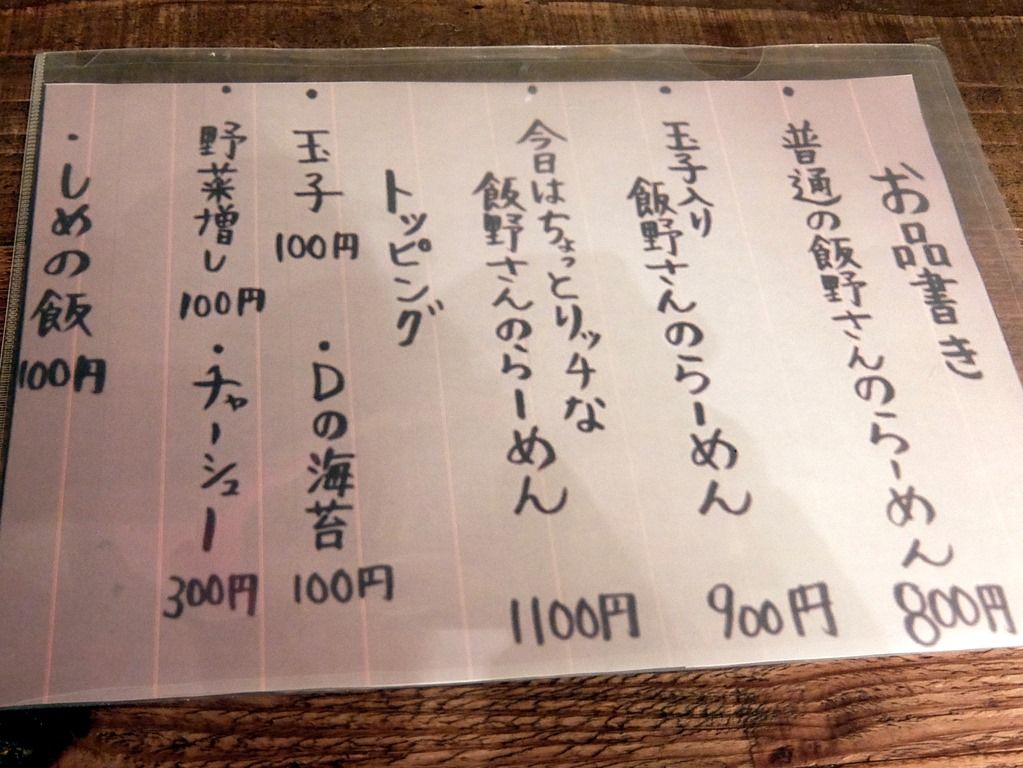 お品書き
・普通の飯野さんのらーめん 800円
・玉子入り
飯野さんのらーめん 900円
・今日はちょっとリッチな
飯野さんのらーめん 1100円
トッピング
・玉子 100円 ・Dの海苔 100円
・野菜増し 100円 ・チャーシュー 300円
・しめの飯 100円